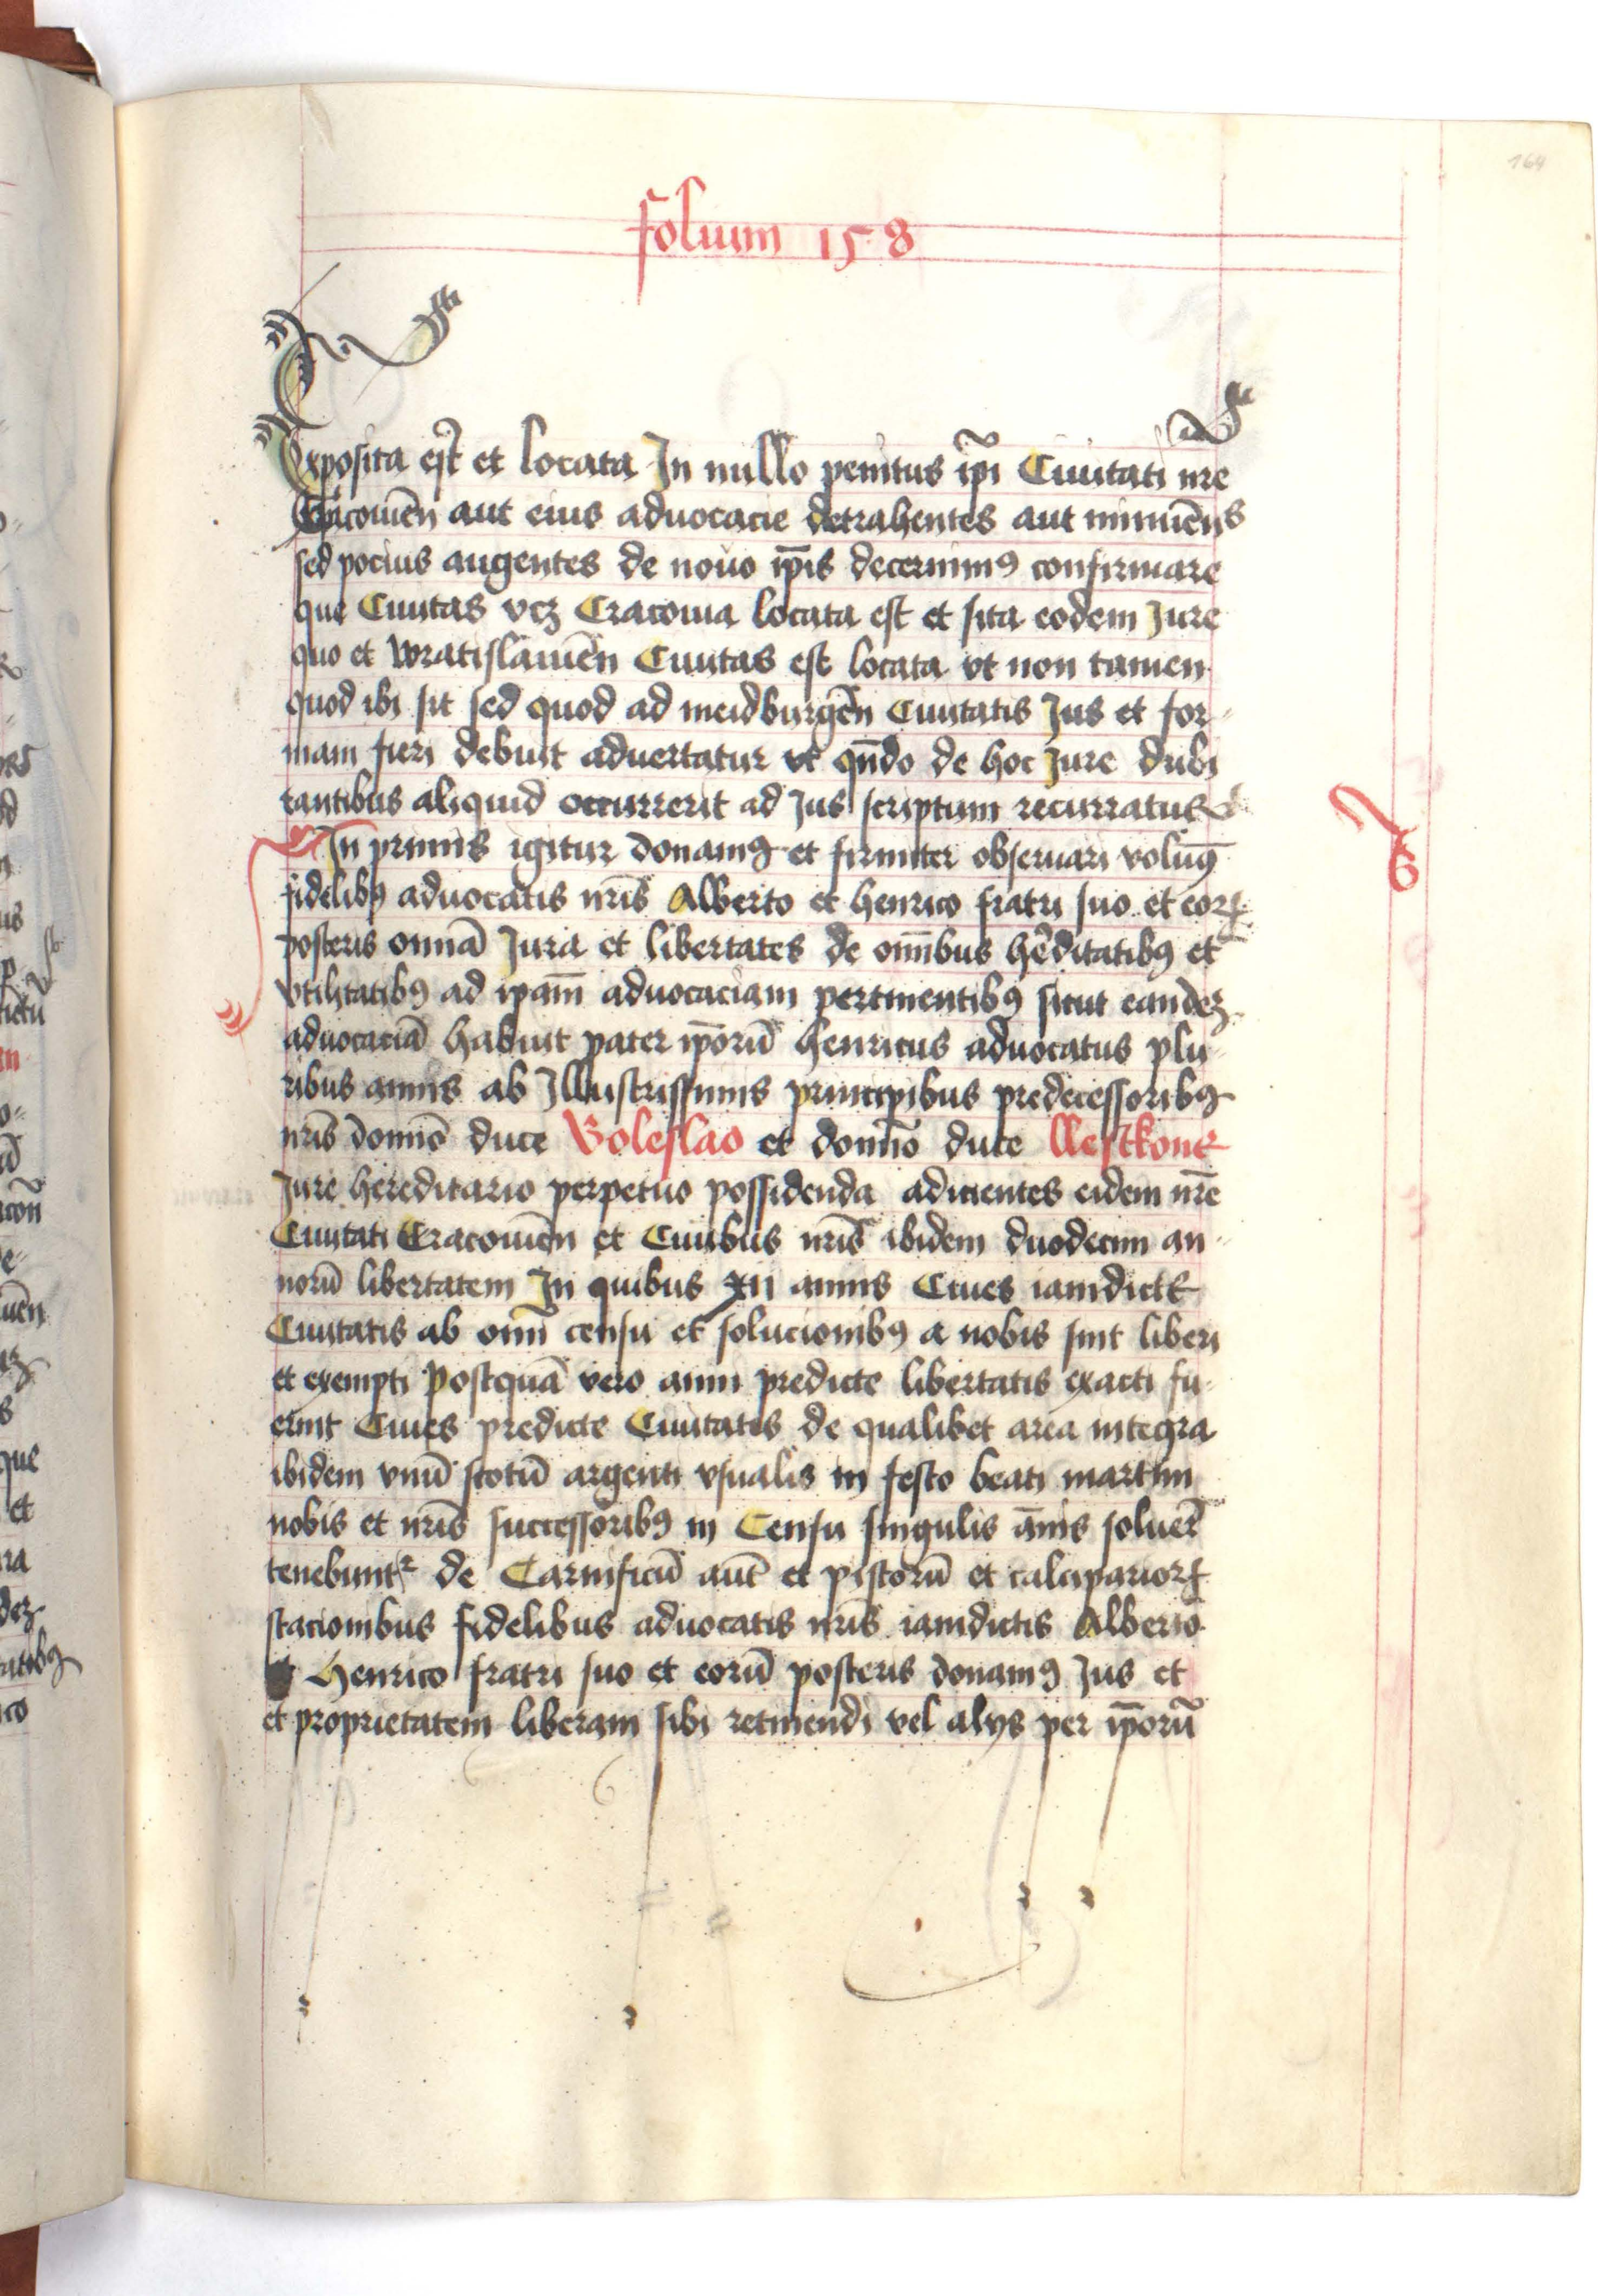 164
folium 158
Exposita est et locata In nullo penitus ip̄i Ciuitati nr̄e
Cracouieñ aut eius aduocacie detrahentes aut minueñs
sed pocius augentes de nouo ip̄is decernimꝰ confirmare
que Ciuitas vcꝫ Cracouia locata est et sita eodem Jure
quo et wratislauieñ Ciuitas est locata vt non tamen
quod ibi sit sed quod ad meidburgeñ Ciuitatis Jus et for-
mam fieri debuit aduertatur vt qn̄do de hoc Jure dubi
tantibus aliquid occurrerit ad Jus scriptum recurratur
In primis igitur donamꝰ et firmiter obseruari volumꝰ
fidelibꝰ aduocatis nr̄is Alberto et henrico fratri suo et eoꝝ
posteris omnā Jura et libertates de om̄ibus hēditatibꝰ et
vtilitatibꝰ ad ipam̄ aduocaciam pertinentibꝰ sicut eandeꝫ
aduocaciā habuit pater ip̄orū henricus aduocatus plu-
ribus annis ab Illustrissimis principibus predecessoribꝰ
nr̄is domīo duce Boleslao et domīo duce llestkone
Jure hereditario perpetuo possidenda adicientes eidem nr̄e
Ciuitati Cracouieñ et Ciuibus nr̄is ibidem duodecim an-
norū libertatem In quibus xii annis Ciues iamdicte
Ciuitatis ab omī censu et solucionibꝰ a nobis sint liberi
et exempti Postquā vero anni predicte libertatis exacti fu-
erint Ciues predicte Ciuitatis de qualibet area integra
ibidem vnū scotū argenti vsualis in festo beati martini
nobis et nr̄is successoribꝰ in Censu singulis an̄is soluer̄
tenebunt᷑ de Carnificū aut̄ et pistorū et calciparioꝝ
stacionibus fidelibus aduocatis nr̄is iamdictis Alberto
et Henrico fratri suo et eorū posteris donamꝰ Jus et
et proprietatem liberam sibi retinendi vel alijs per ip̄orū
6